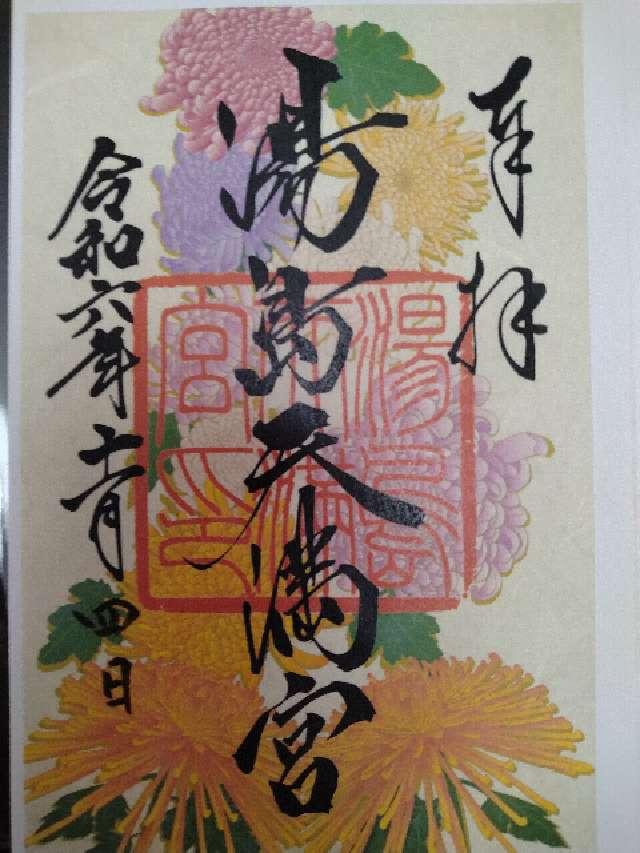 奉拝
湯島天満宮
令和六年十一月四日
湯島天満宮印